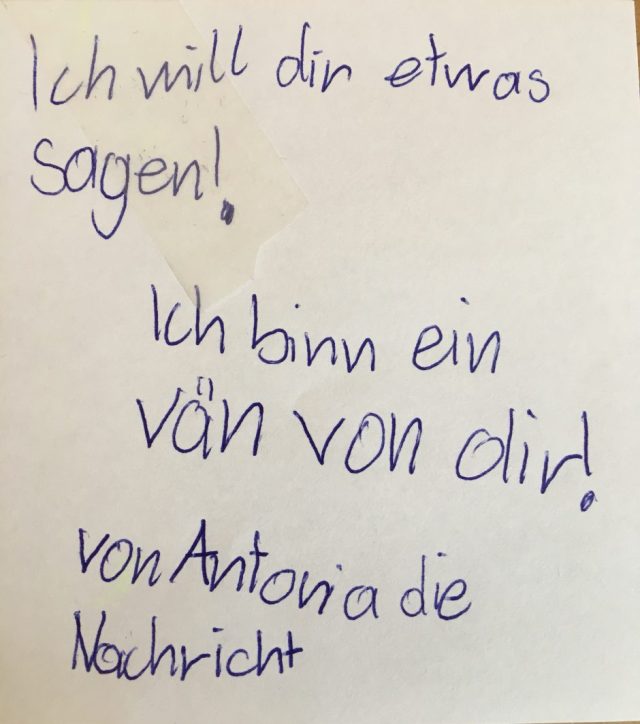 Ich will dir etwas
sagen!
Ich binn ein
vän von dir!
von Antonia die
Nachricht